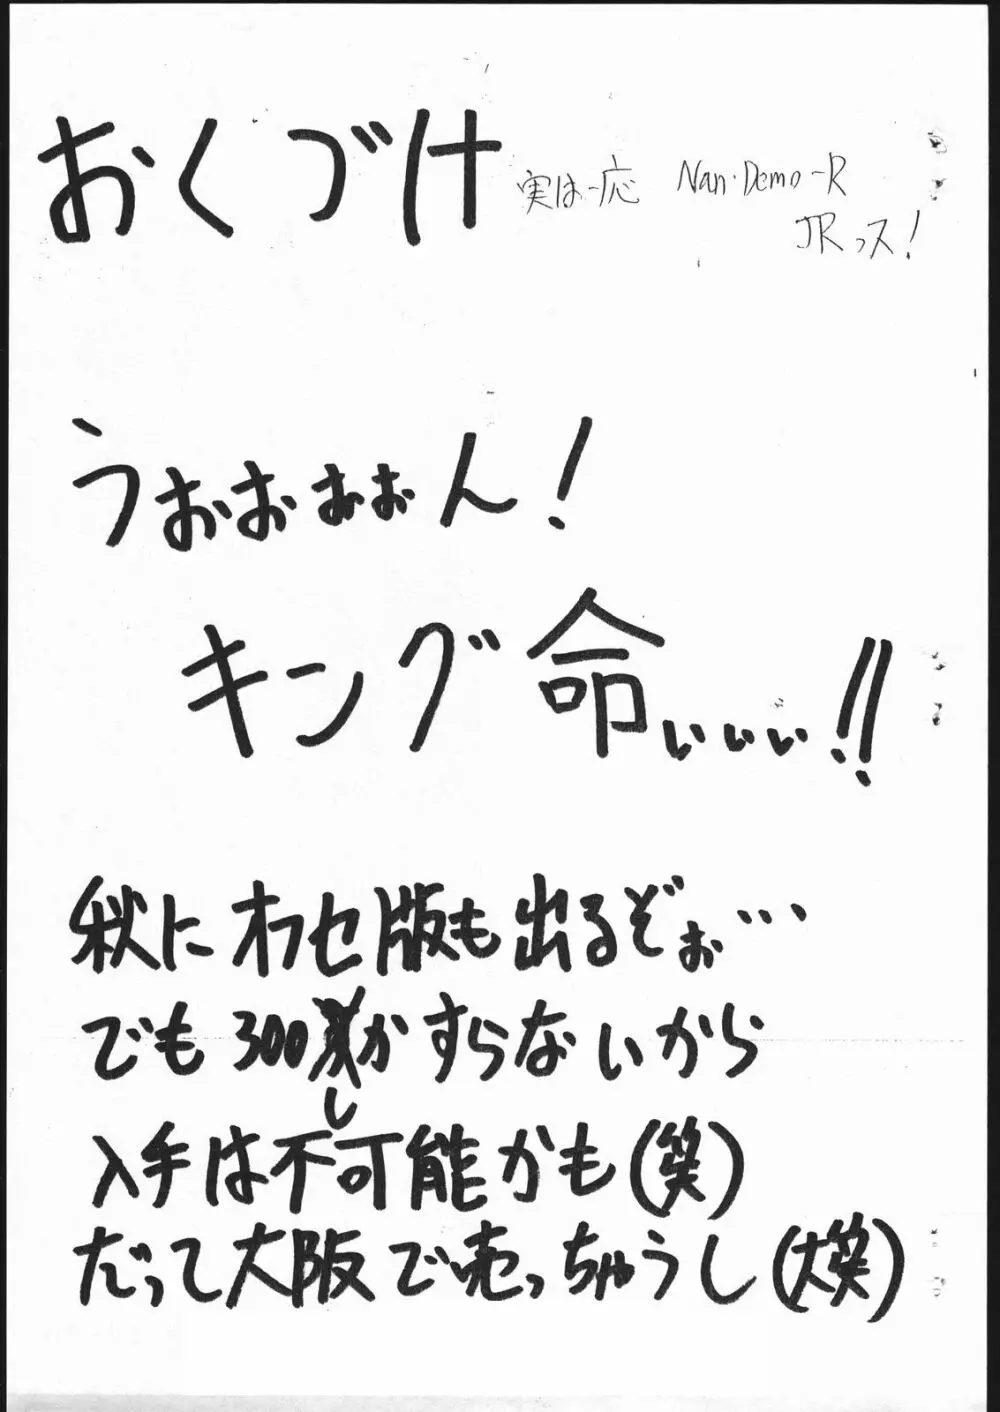 おくづけ
実は一応 Nan・Demo-R
JRっス！
うぉおぉぉん！
キング命ぃぃぃ！！
秋にオフセ版も出るぞぉ…
でも300しかすらないから
入手は不可能かも(笑)
だって大阪で売っちゃうし(大笑)